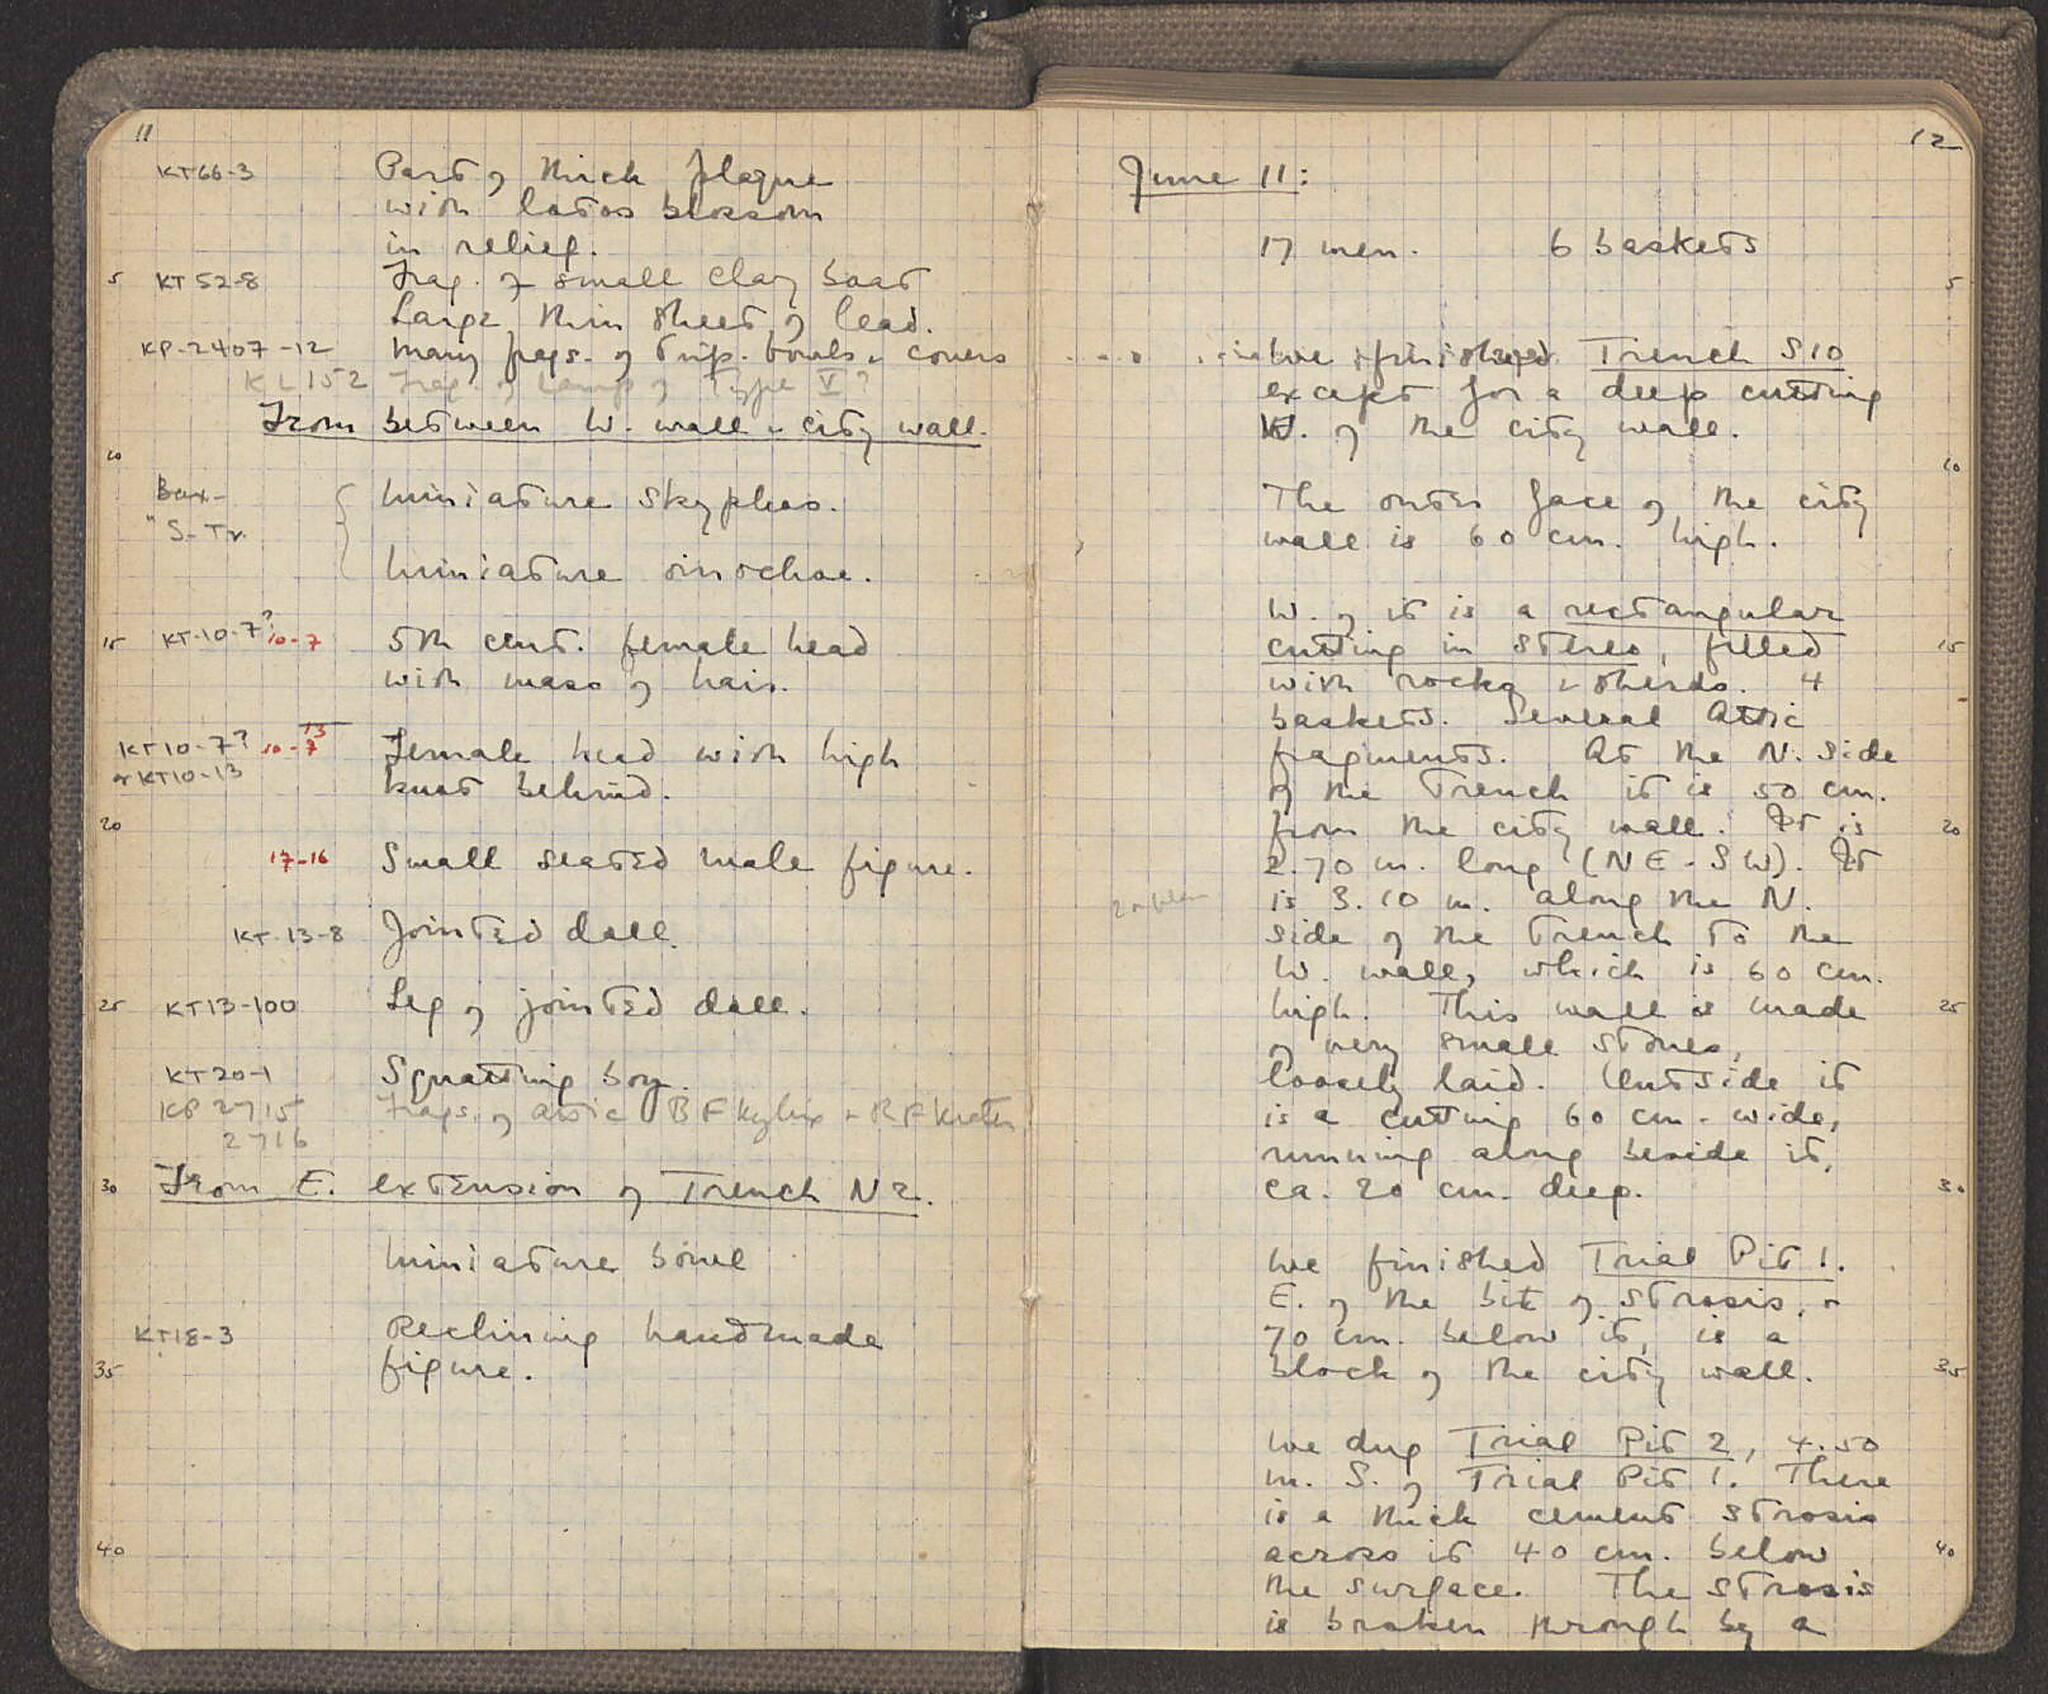 11
KT66-3 Part of thick plaque
with lotos blossom
in relief.
5 KT 52-8 Frag. of small clay boat
Large, thin sheet of lead.
KP-2407-12 Many frags. of trip. bowls & covers
KL152 Frag. of Lamp of Type V?
From between W. wall & city wall.
10
Box- Miniature skyphos.
"S-Tr.
Miniature oinochoe.
15 KT-10-7? 10-7 5th cent. female head
with mass of hair.
13
KT10-7? 10-7 Female head with high
or KT10-13 knot behind.
20
17-16 Small seated male figure.
KT-13-8 Jointed doll.
25 KT13-100 Leg of jointed doll.
KT20-1 Squatting boy.
KP 2715 Frags. of Attic BF kylix & RF krater
2716
30 From E. extension of Trench N2.
Miniature bowl
KT18-3 Reclining handmade
35 figure.
40
12
June 11:
17 men. 6 baskets
5
We finished Trench S10
except for a deep cutting
W. of the city wall.
10
The outer face of the city
wall is 60 cm. high.
W. of it is a rectangular
cutting in stereo, filled 15
with rocks & sherds. 4
baskets. Several Attic
fragments. At the N. side
of the trench it is 50 cm.
from the city wall. It is 20
2.70 m. long (NE-SW). It
is 3.10 m. along the N.
side of the trench to the
W. wall, which is 60 cm.
high. This wall is made 25
of very small stones,
loosely laid. Outside it
is a cutting 60 cm. wide,
running along beside it,
ca. 20 cm. deep. 30
We finished Trial Pit 1.
E. of the bit of strosis, &
70 cm. below it, is a
block of the city wall. 35
We dug Trial Pit 2, 4.50
m. S. of Trial Pit 1. There
is a thick cement strosis
across it 40 cm. below 40
the surface. The strosis
is broken through by a